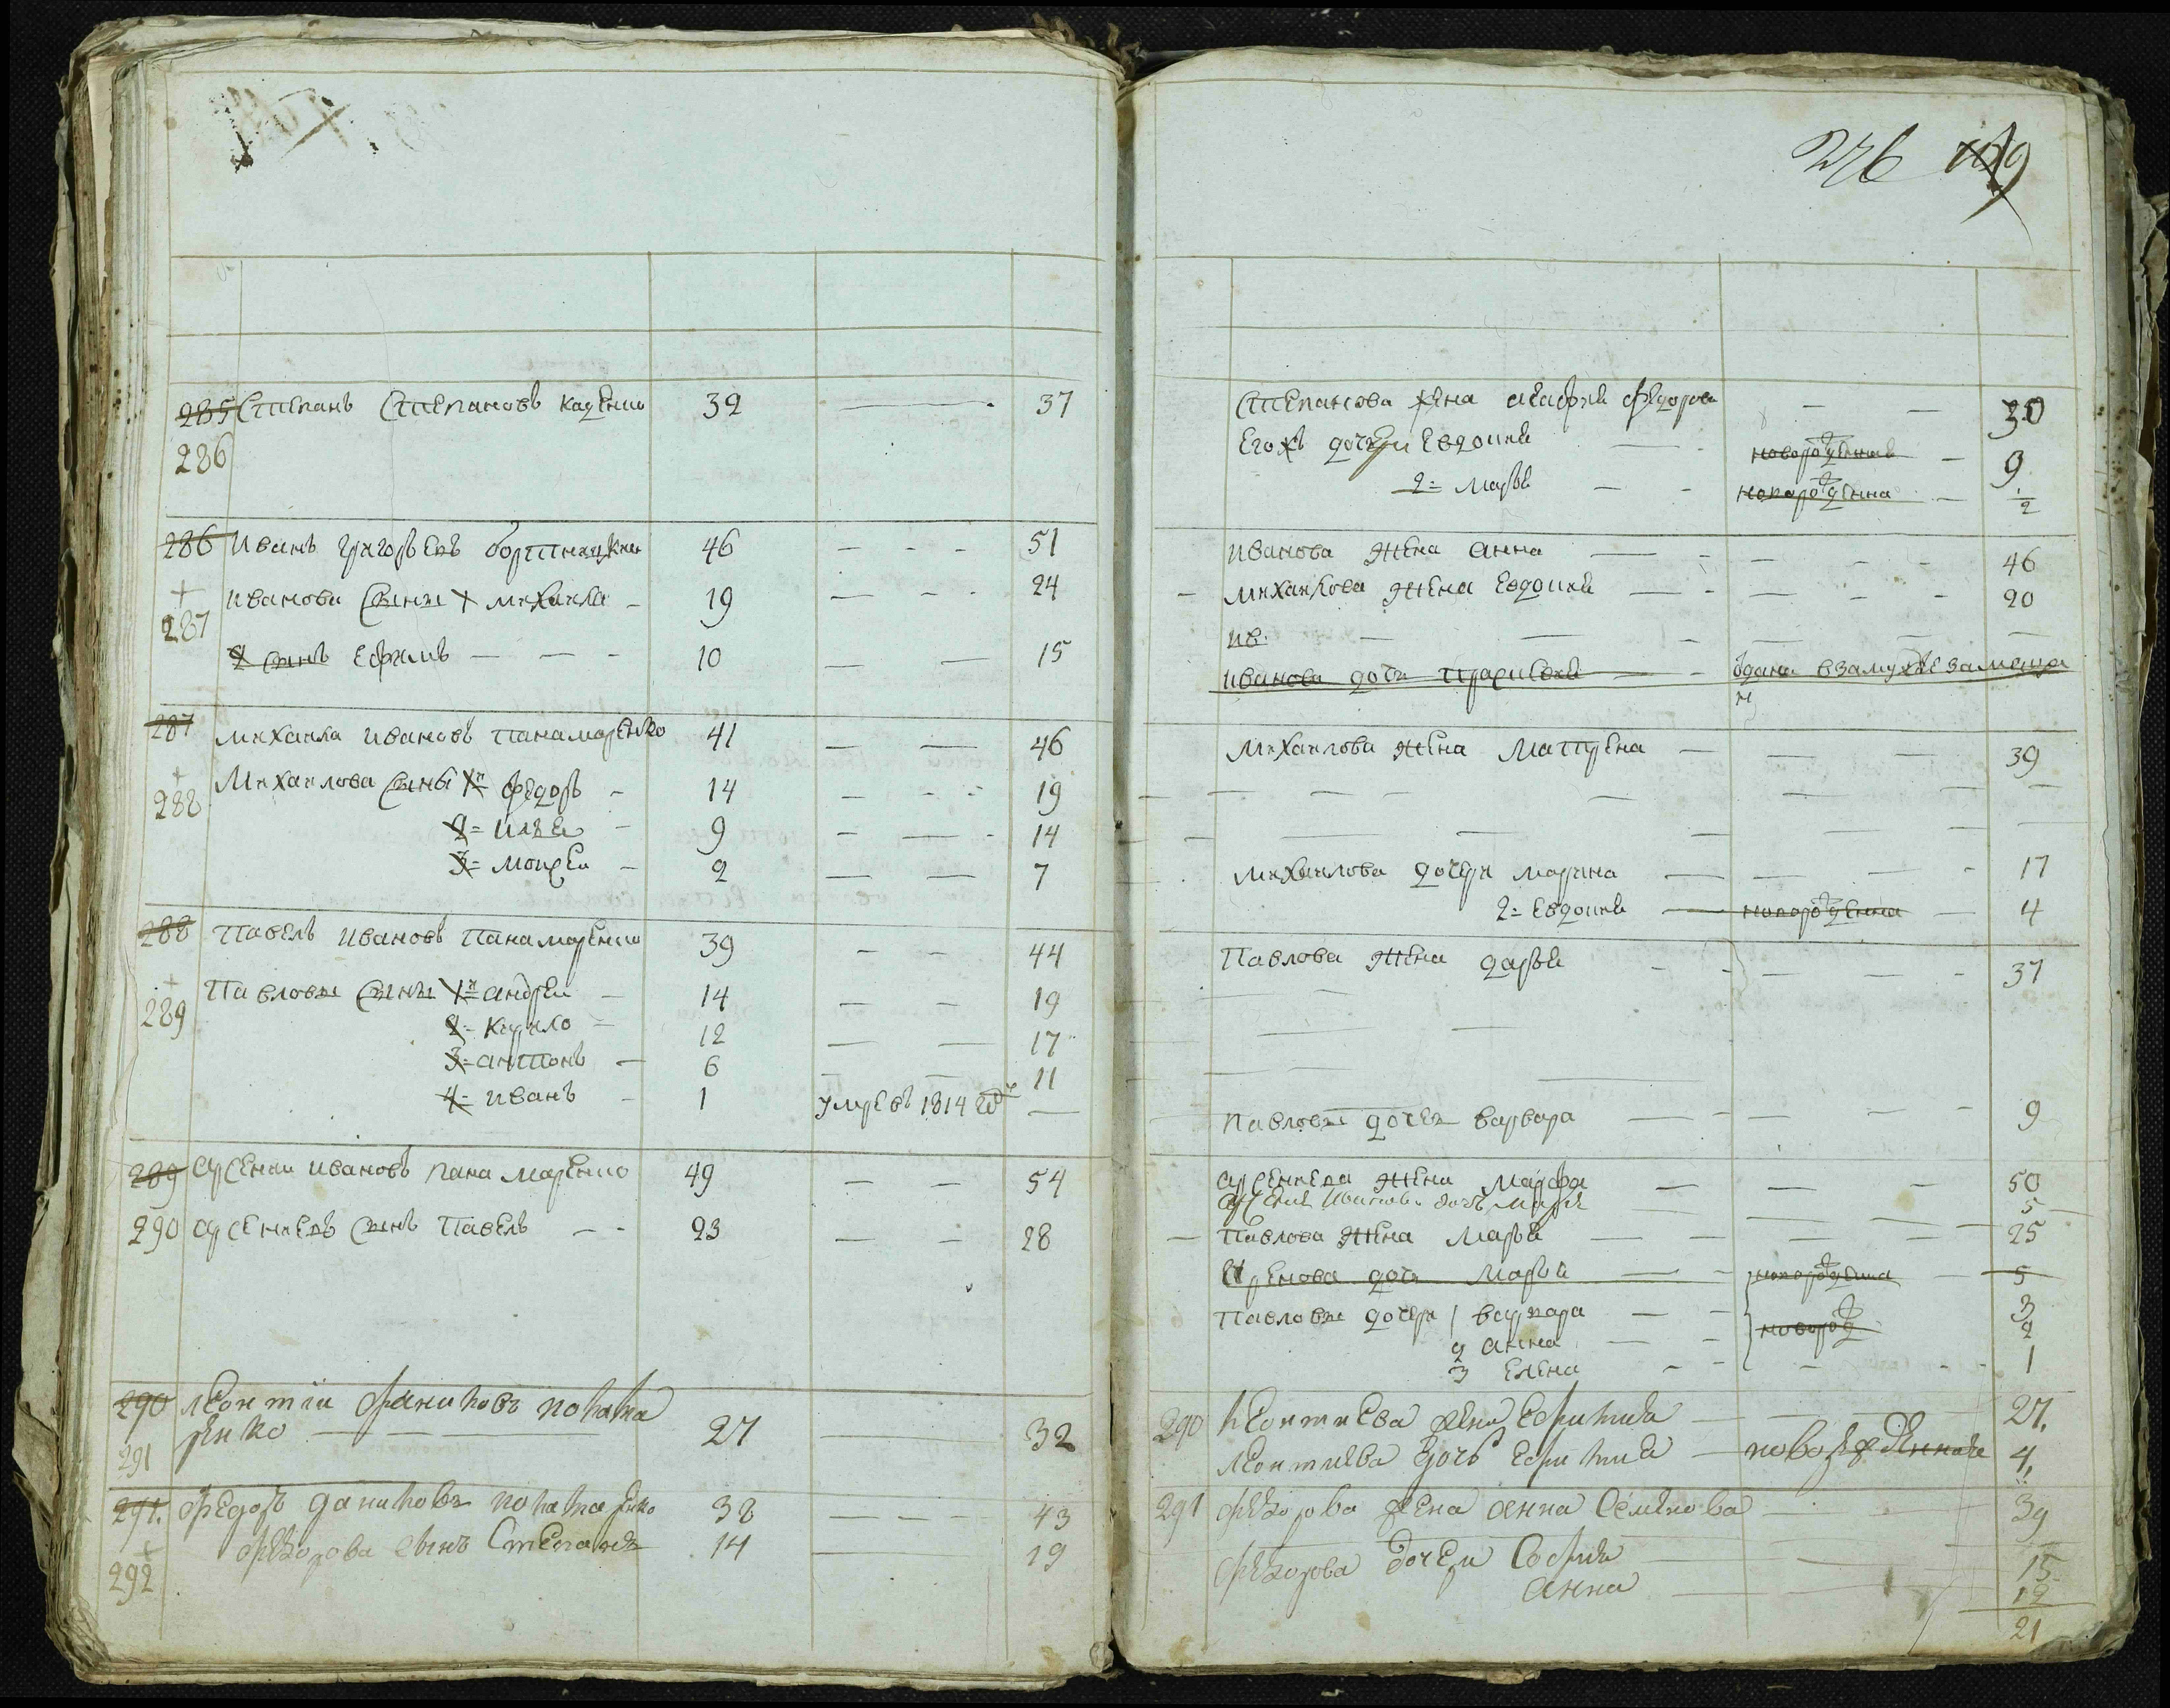 285 Степанъ Степановъ Каденко 32 37
286
286 Иванъ Григорьевъ 46 51
Иванови сыны Михайла 19 24
287
2 сынъ Ефимъ 10 15
287 Михаила Ивановъ Панамаренко 41 46
Михаилова сыны 1й Федоръ 14 19
288
2 = Илья 9 14
3 = Моисей 2 7
288 Павелъ Ивановъ Панамаренко 39 44
Павловы сыны 1й Андрей 14 19
289
2 = Кирило 12 17
3 = Антонъ 6 11
4 = Иванъ 1 умре въ 1814 году
289 Арсений Ивановъ Панамаренко 49 54
290 Арсениевъ сынъ Павелъ 23 28
290 Леонтiй
ренко 27 32
291
291. Федоръ Даниловъ Понамаренко 38 43
Федорова сынъ Степанъ 14 19
292
276
Степанова жена Агафия Федорова 30
Егожъ дочери Евдокия новорожденна 9
2 = Марья новорожденна 1/2
Иванова жена Анна 46
Михайлова жена Евдокия 20
Ив.
Иванова дочь Прасковья одана в замуже
Михаилова жена Матрена 39
Михаилова дочери Марина 17
2 = Евдокия новорожденна 4
Павлова жена Дарья 37
Павловы дочеръ Варвара 9
Арсениева жена Марфа 50
Арсения Иванова дочь Марья 5
Павлова жена Марья 25
дочь Марья новорожденна 5
Павловы дочери 1 Варвара 3
2 Анна новорожд 2
3 Елена 1
290 Леонтиева жена Ефимия 27.
Леонтиева дочь Ефимия новорожденная 4,
291 Федорова жена Анна Семенова 39
Федорова дочери София 15
Анна 12
21